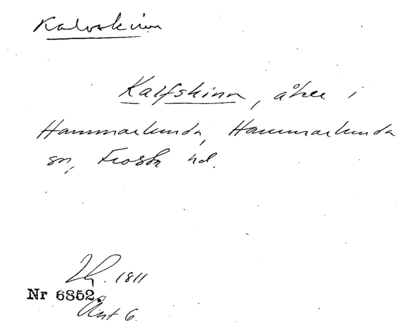 Kalvskinn
Kalfskinn, åker i
Hammarlunda, Hammarlunda
sn, Frosta hd.
1811
Nr 6852.
Akt 6.